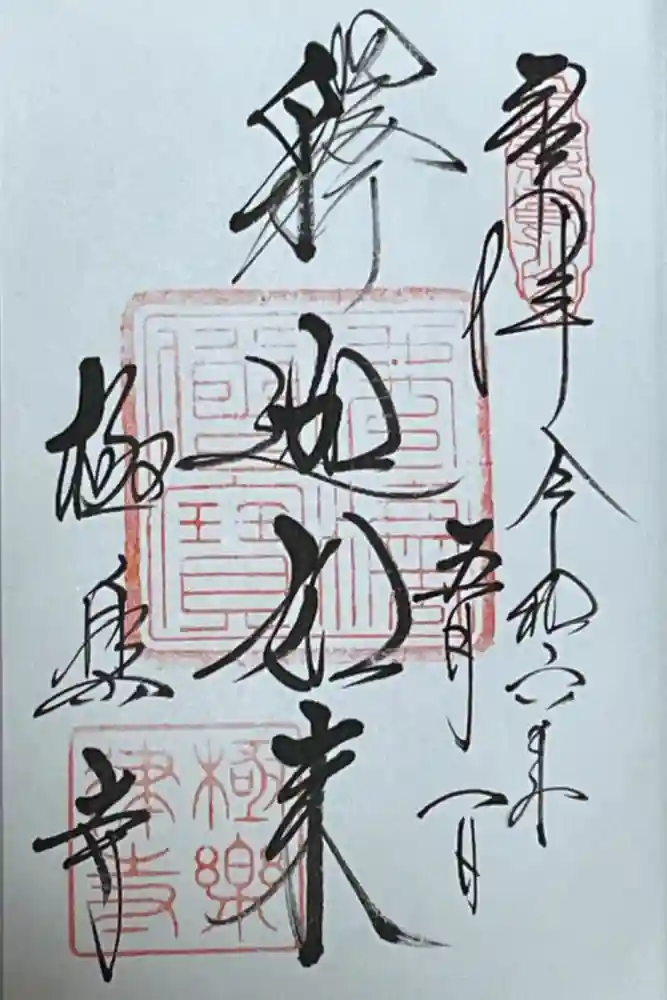 奉拝 令和六年
五月一日
釋迦如来
極楽寺
極樂律寺